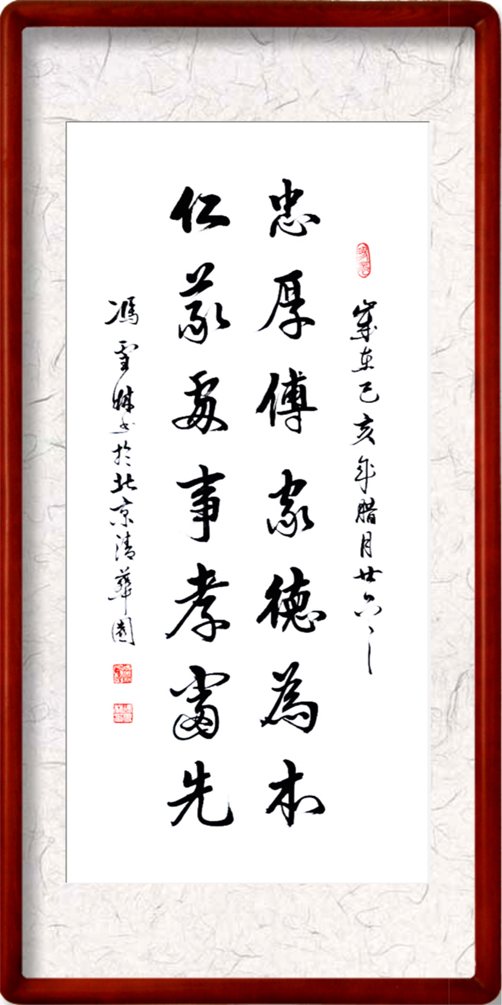 歲在己亥年腊月廿六
忠厚傅家德為本
仁義處事孝當先
馮雪林書於北京清華園